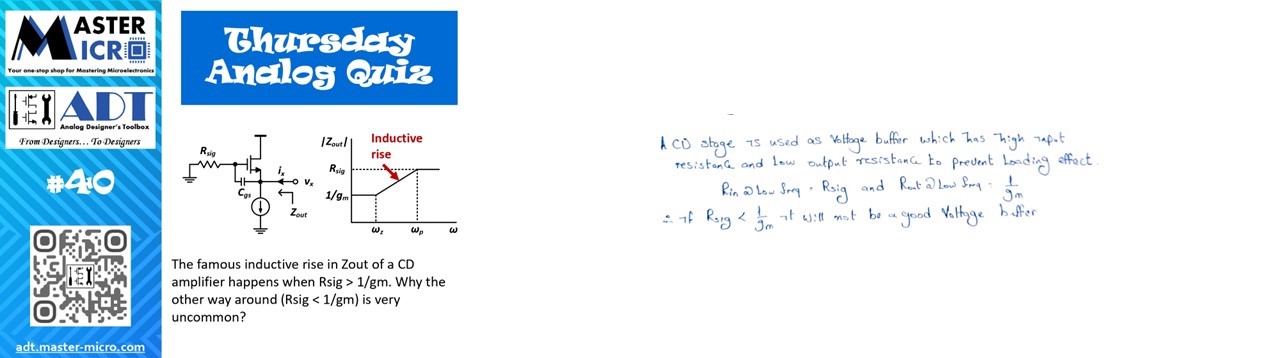 MASTER
MICRO
Your one-stop shop for Mastering Microelectronics
ADT
Analog Designer's Toolbox
From Designers... To Designers
#40
adt.master-micro.com
Thursday
Analog Quiz
Rsig
Cgs
ix
vx
Zout
|Zout|
Inductive
rise
Rsig
1/gm
ωz
ωp
ω
The famous inductive rise in Zout of a CD
amplifier happens when Rsig > 1/gm. Why the
other way around (Rsig < 1/gm) is very
uncommon?
A CD stage is used as Voltage buffer which has high input
resistance and Low output resistance to prevent Loading effect.
Rin @ Low freq = Rsig and Rout @ Low freq = 1/gm
∴ if Rsig < 1/gm it will not be a good Voltage buffer